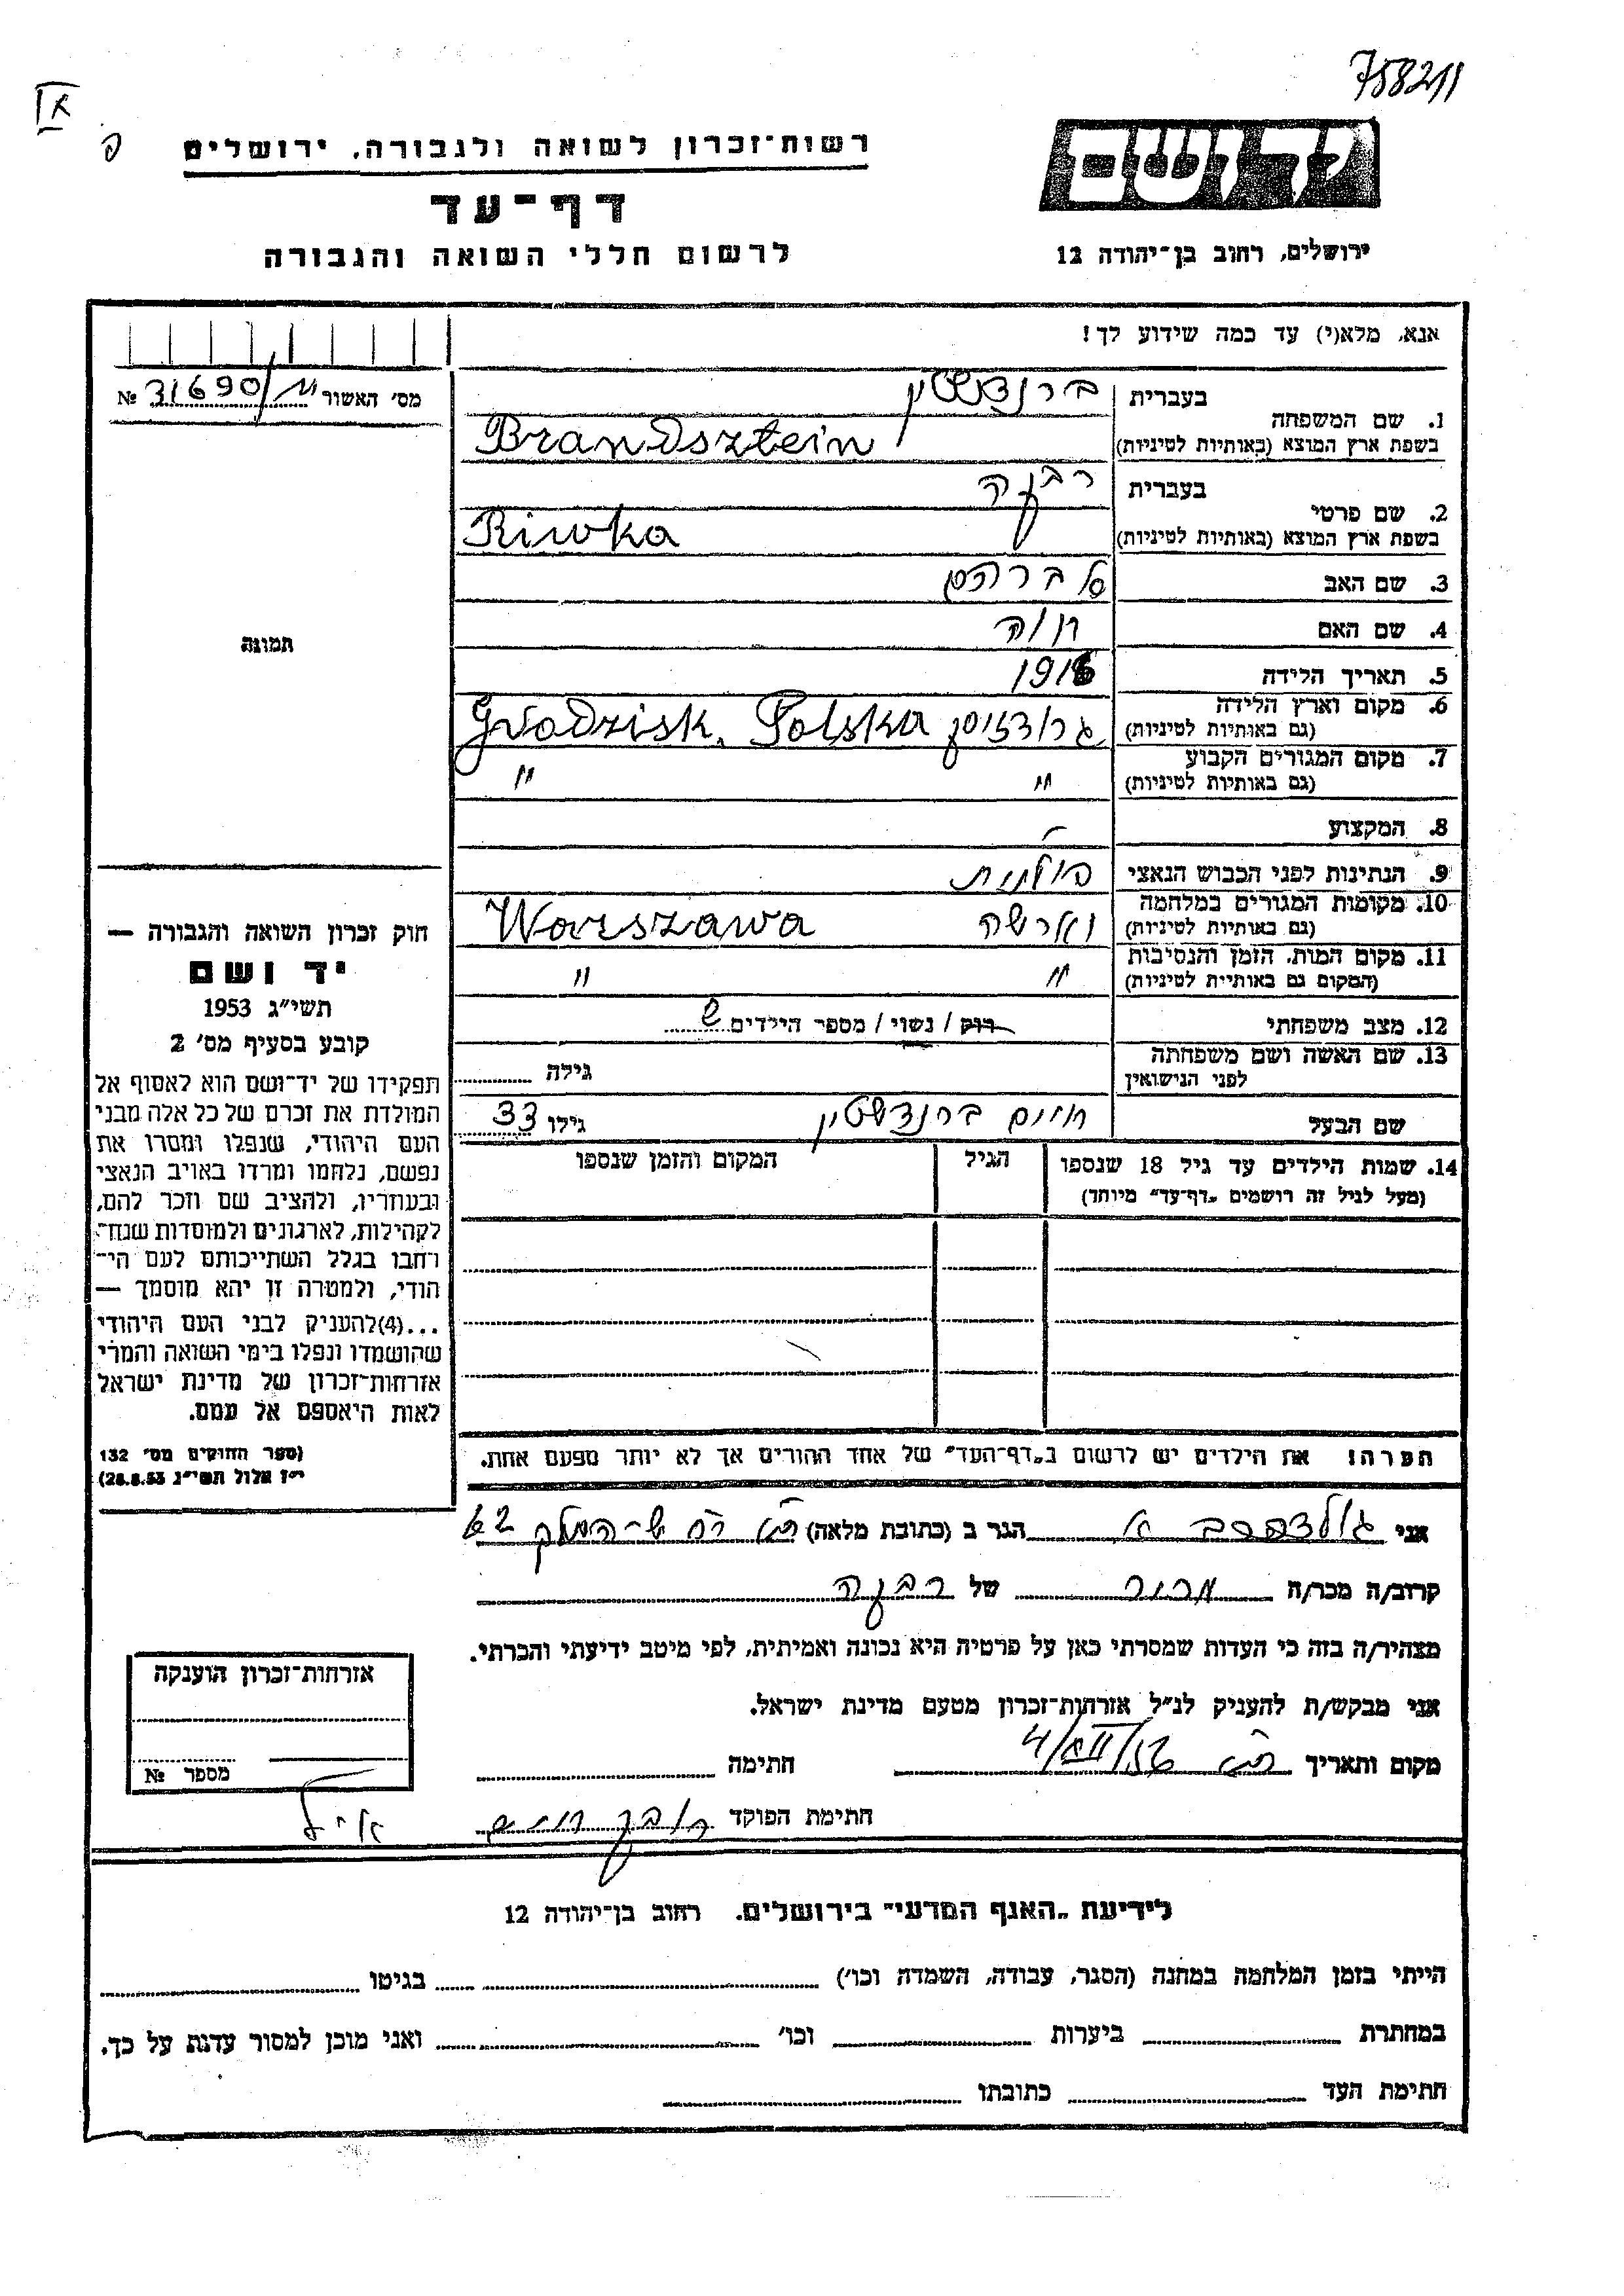 758211
IX
פ
רשות־זכרון לשואה ולגבורה, ירושלים
דף־עד
לרשום חללי השואה והגבורה
ידושם
ירושלים, רחוב בן־יהודה 12
אנא, מלא(י) עד כמה שידוע לך!
מס' האשור 31690/ № 
1. שם המשפחה בעברית ברנדשטיין
בשפת ארץ המוצא (באותיות לטיניות) Brandsztein
2. שם פרטי בעברית רבקה
בשפת ארץ המוצא (באותיות לטיניות) Riwka
3. שם האב אברהם
4. שם האם חוה
5. תאריך הלידה
6. מקום וארץ הלידה (גם באותיות לטיניות) גרודזיסק Grodzisk, Polska
7. מקום המגורים הקבוע (גם באותיות לטיניות) " "
8. המקצוע
9. הנתינות לפני הכבוש הנאצי פולנית
10. מקומות המגורים במלחמה (גם באותיות לטיניות) וארשה Warszawa
11. מקום המות, הזמן והנסיבות (המקום גם באותיות לטיניות) " "
12. מצב משפחתי רוק / נשוי / מספר הילדים
13. שם האשה ושם משפחתה לפני הנישואין גילה
שם הבעל חיים ברנדשטיין גילו 33
14. שמות הילדים עד גיל 18 שנספו (מעל לגיל זה רושמים „דף־עד" מיוחד)
הגיל
המקום והזמן שנספו
הערה! את הילדים יש לרשום ב„דף־העד" של אחד ההורים אך לא יותר מפעם אחת.
תמונה
חוק זכרון השואה והגבורה —
יד ושם
תשי״ג 1953
קובע בסעיף מס' 2
תפקידו של יד־ושם הוא לאסוף אל
המולדת את זכרם של כל אלה מבני
העם היהודי, שנפלו ומסרו את
נפשם, נלחמו ומרדו באויב הנאצי
ובעוזריו, ולהציב שם וזכר להם,
לקהילות, לארגונים ולמוסדות שנח־
רבו בגלל השתייכותם לעם הי־
הודי, ולמטרה זו יהא מוסמך —
...(4)להעניק לבני העם היהודי
שהושמדו ונפלו בימי השואה והמרי
אזרחות־זכרון של מדינת ישראל
לאות היאספם אל עמם.
(ספר החוקים מס' 132
י״ז אלול תשי״ג 28.8.53)
אני גולדפרב א הגר ב (כתובת מלאה) המלך 62
קרוב/ה מכר/ה מכר של רבקה
מצהיר/ה בזה כי העדות שמסרתי כאן על פרטיה היא נכונה ואמיתית, לפי מיטב ידיעתי והכרתי.
אני מבקש/ת להעניק לנ״ל אזרחות־זכרון מטעם מדינת ישראל.
מקום ותאריך 4/XII/56 חתימה
חתימת הפוקד
אזרחות־זכרון הוענקה
מספר №
לידיעת „האגף המדעי" בירושלים, רחוב בן־יהודה 12
הייתי בזמן המלחמה במחנה (הסגר, עבודה, השמדה וכו') בגיטו
במחתרת ביערות וכו' ואני מוכן למסור עדות על כך.
חתימת העד כתובתו